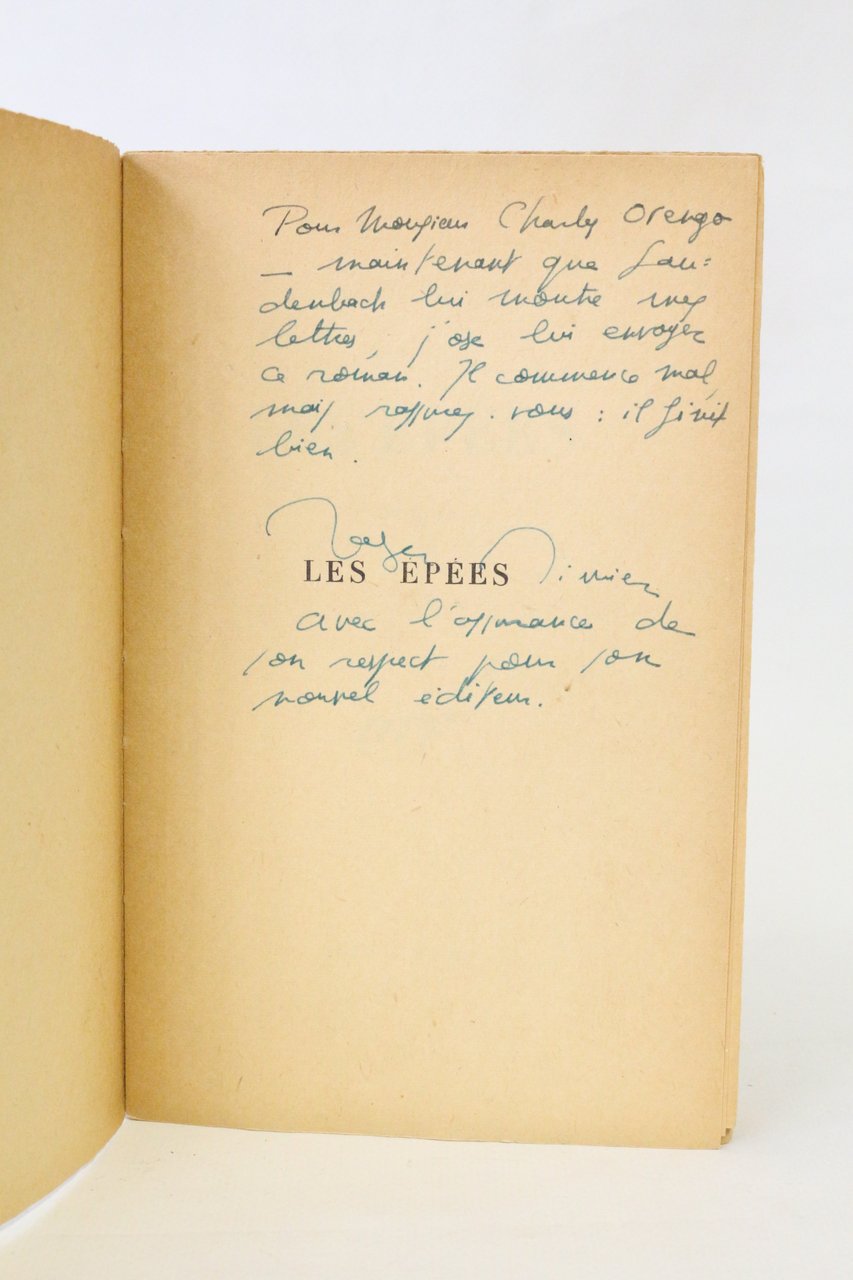 Pour Monsieur Charly Orengo
_ maintenant que Lau=
denbach lui montre mes
lettres, j'ose lui envoyer
ce roman. Il commence mal,
mais rassurez-vous : il finit
bien.
Roger Nimier
LES ÉPÉES
avec l'assurance de
son respect pour son
nouvel éditeur.